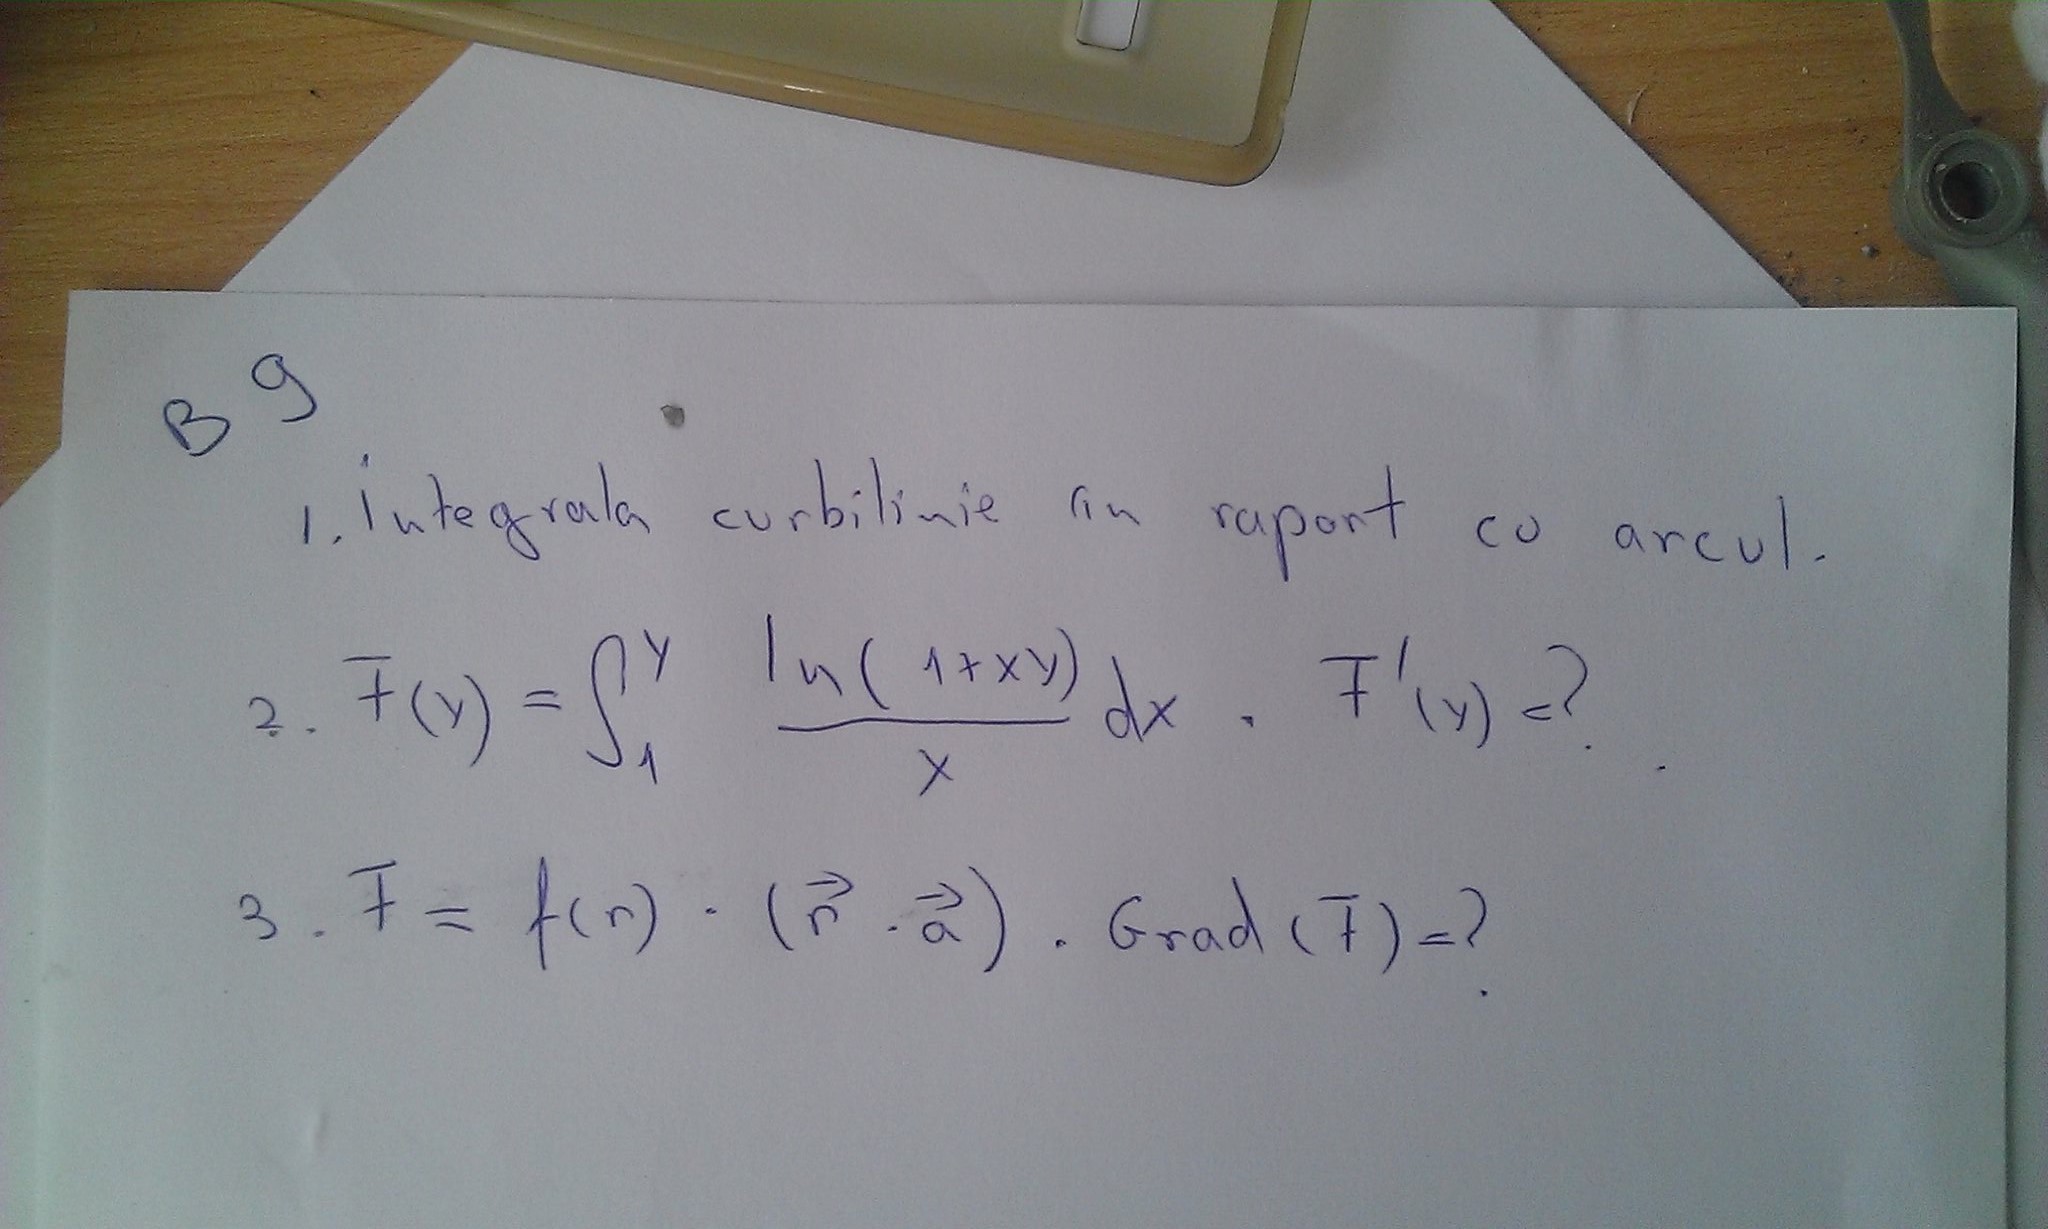 B 9
1. Integrala curbilinie în raport cu arcul.
2. F(y) = ∫₁ʸ ln(1+xy)/x dx . F'(y) = ?
3. F = f(r) · (r⃗ · a⃗) . Grad (F) = ?